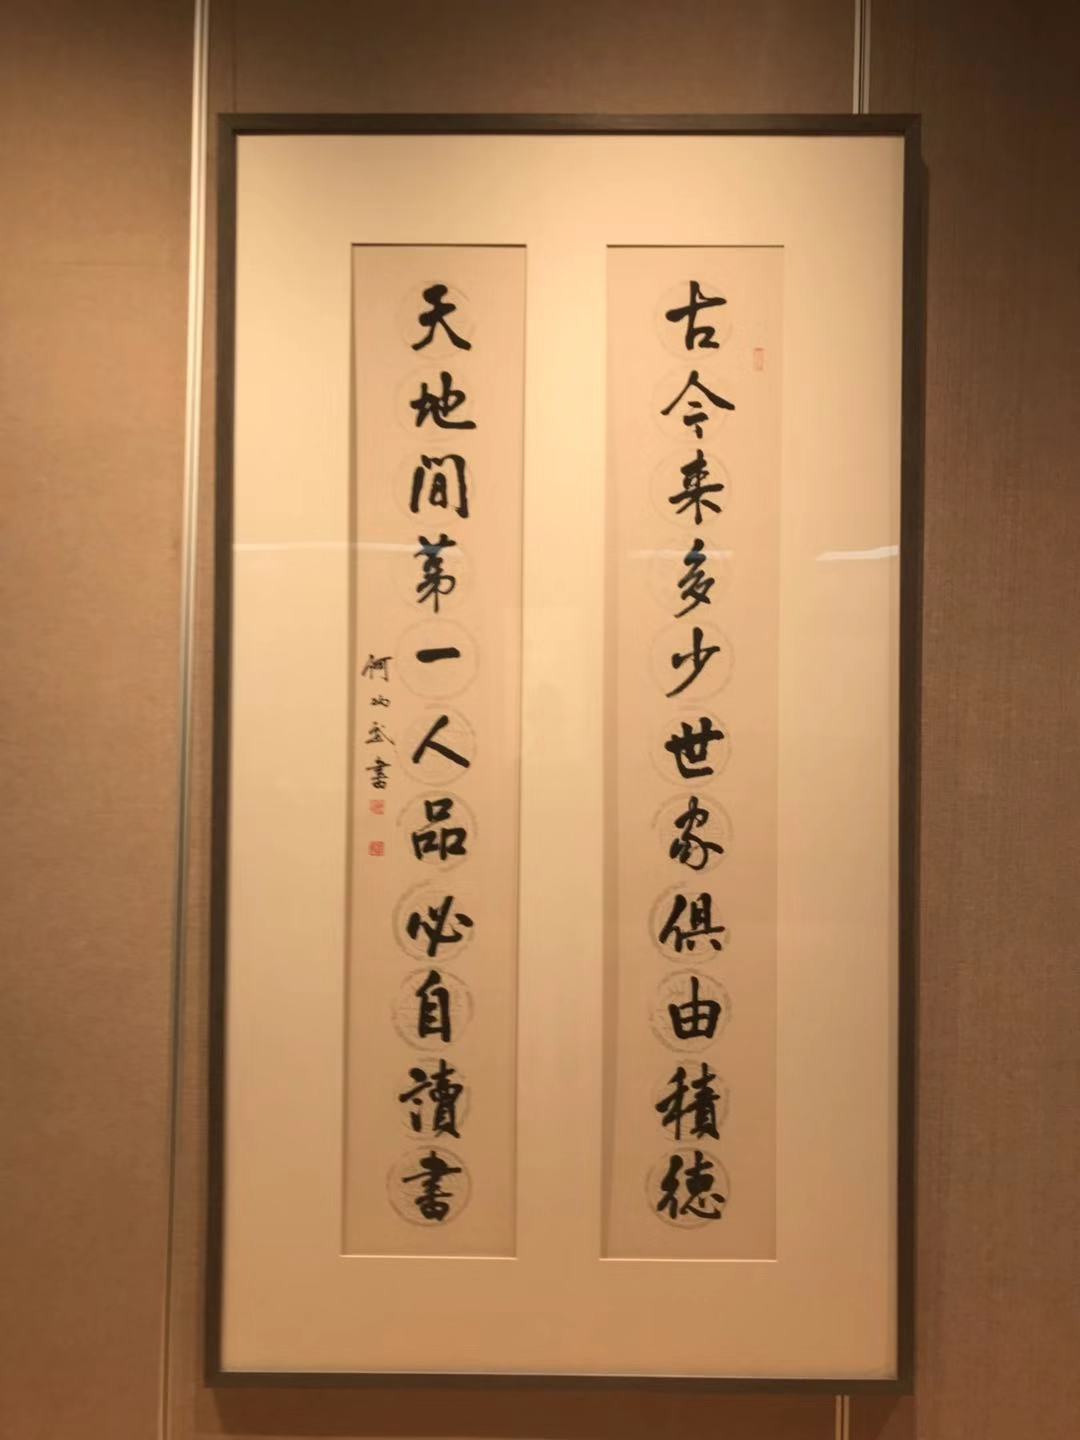 古今来多少世家俱由積德
天地間第一人品必自讀書
何炳武書